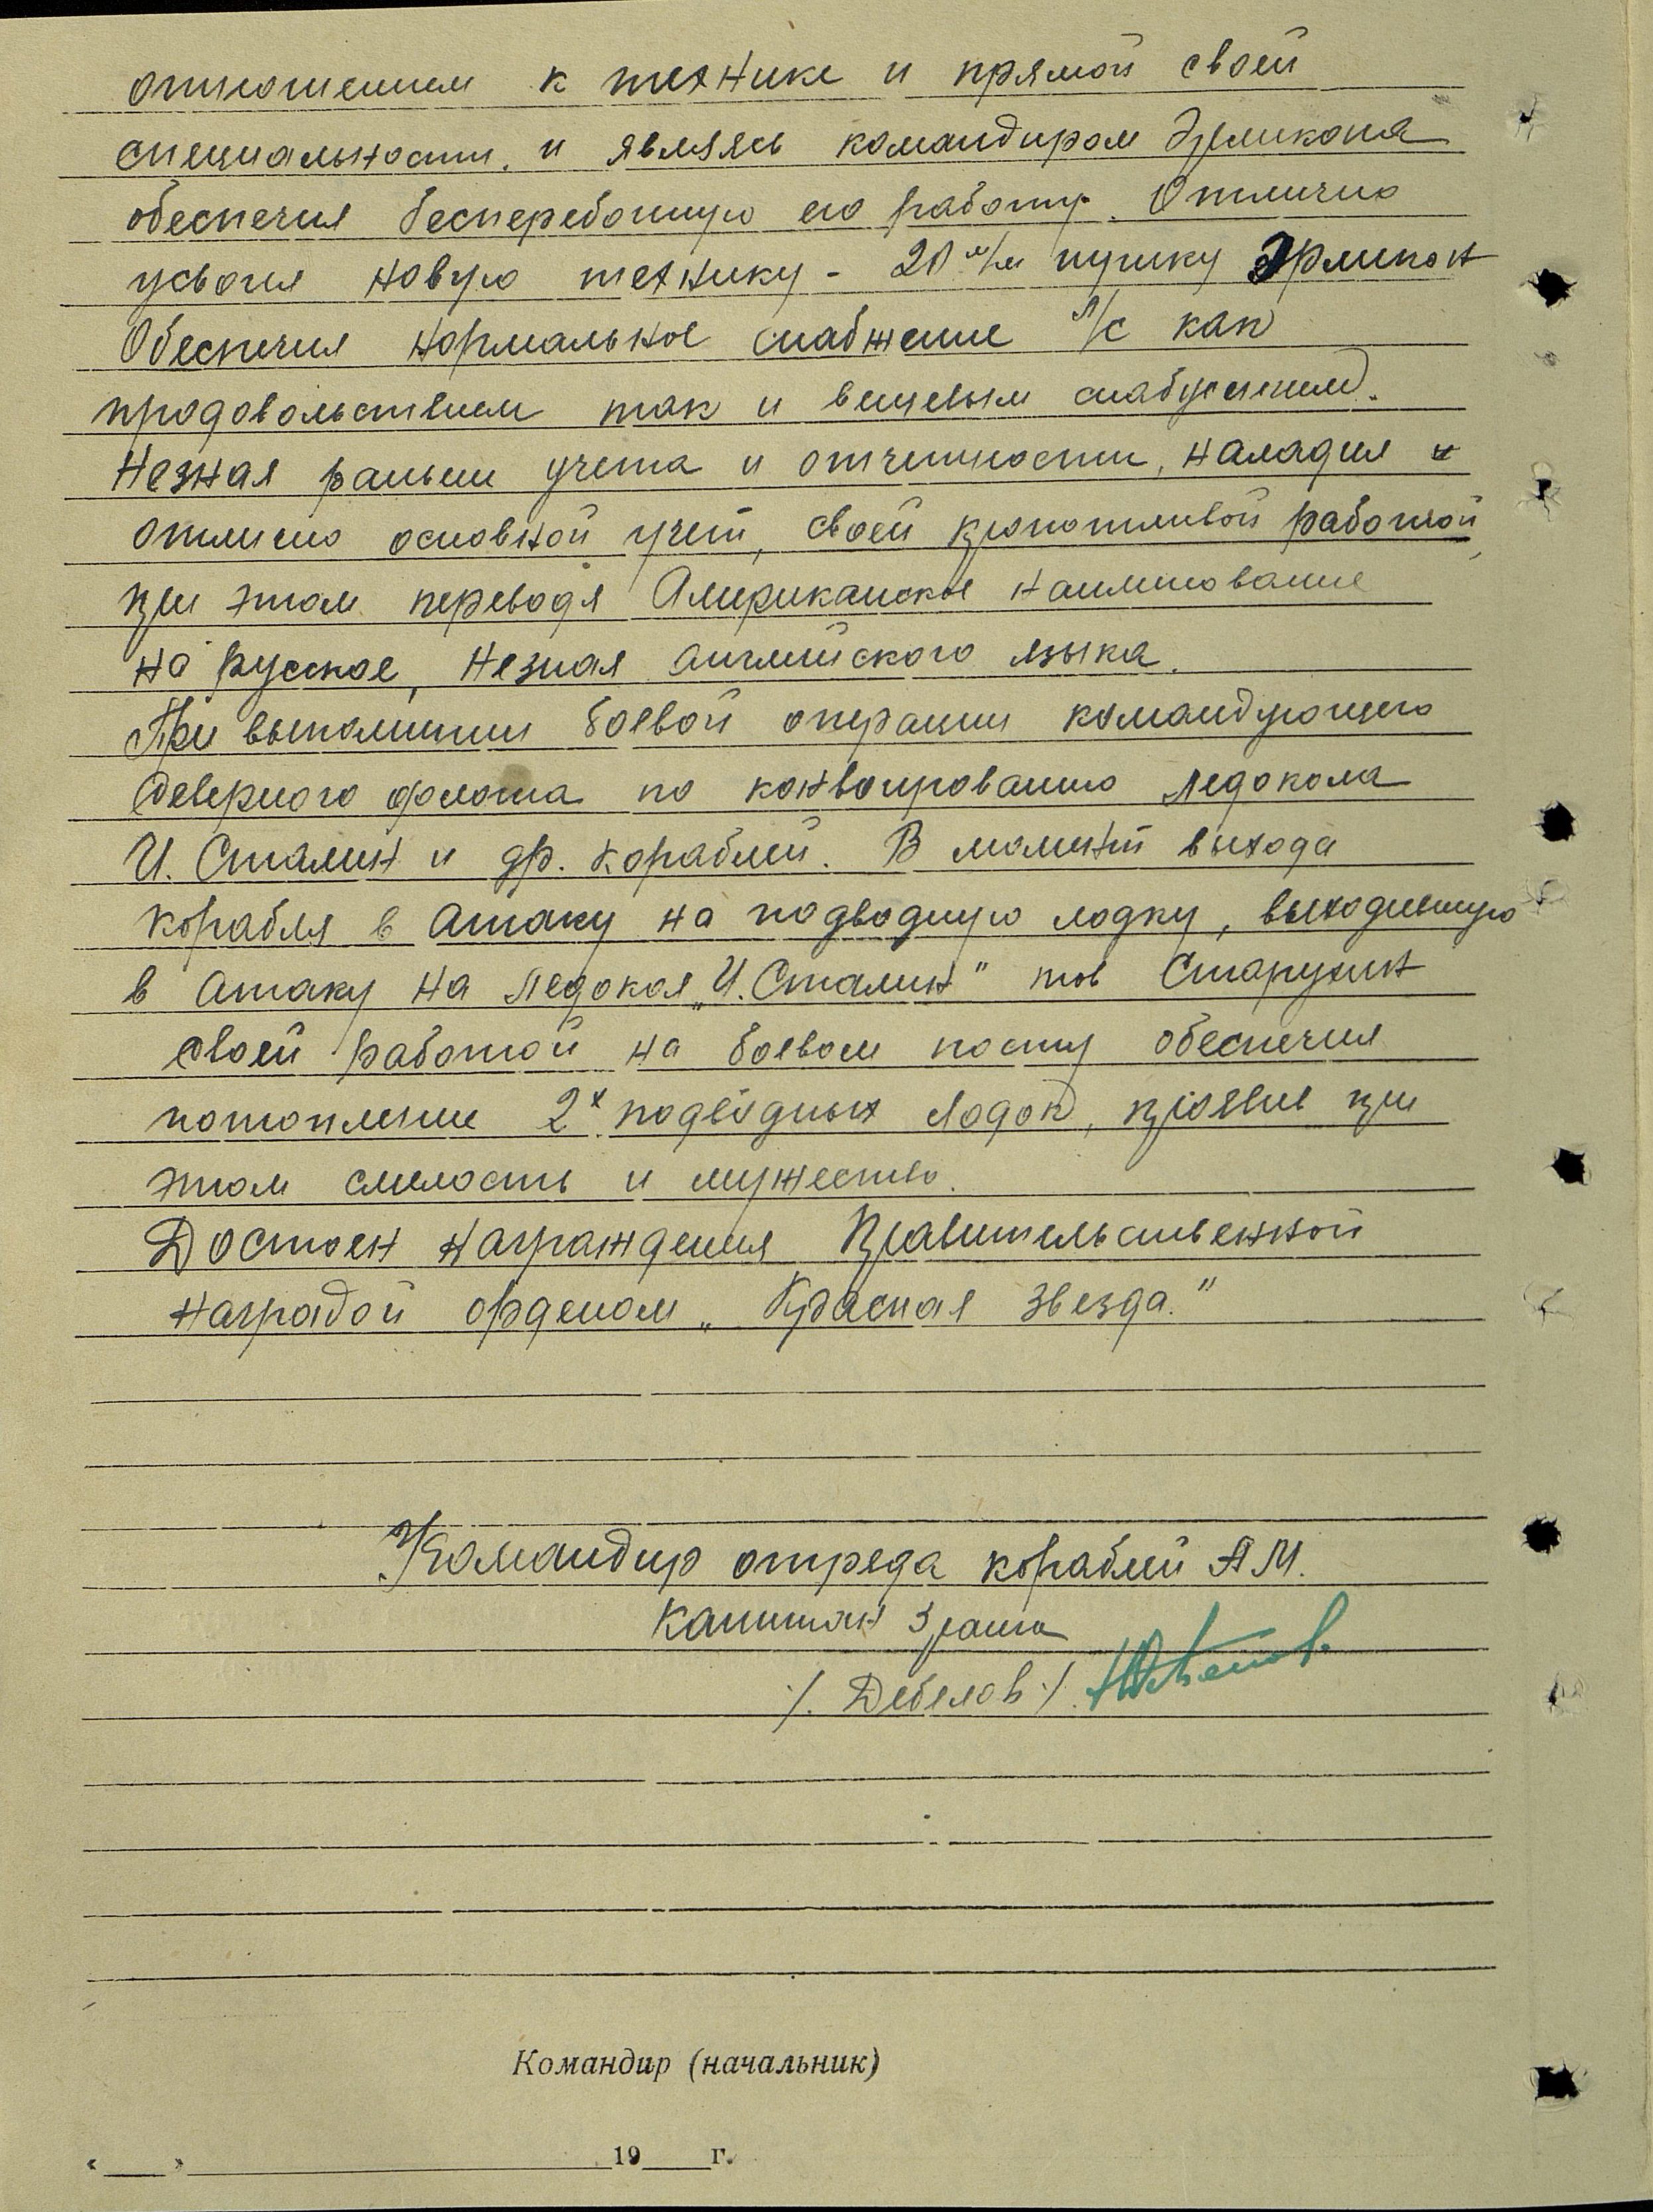 отношением к технике и прямой своей
специальности. и являясь командиром Эрликона
обеспечил бесперебойную его работу. Отлично
усвоил новую технику - 20 м/м пушку Эрликон
Обеспечил нормальное снабжение л/с как
продовольствием так и вещевым снабжением.
Незная раньше учета и отчетности, наладил и
отлично основной учет, своей кропотливой работой
при этом переводя Американское наименование
на русское, незная английского языка.
При выполнении боевой операции командующего
Северного флота по конвоированию ледокола
И. Сталин и др. кораблей. В момент выхода
корабля в атаку на подводную лодку, выходившую
в атаку на ледокол „И. Сталин" тов Старухин
своей работой на боевом посту обеспечил
потопление 2х подводных лодок, проявив при
этом смелость и мужество.
Достоен награждения Правительственной
наградой орденом „Красная звезда."
Командир отряда кораблей АМ.
Капитан 3 ранга
/. Дебелов /.
Командир (начальник)
«___» ___ 19___г.